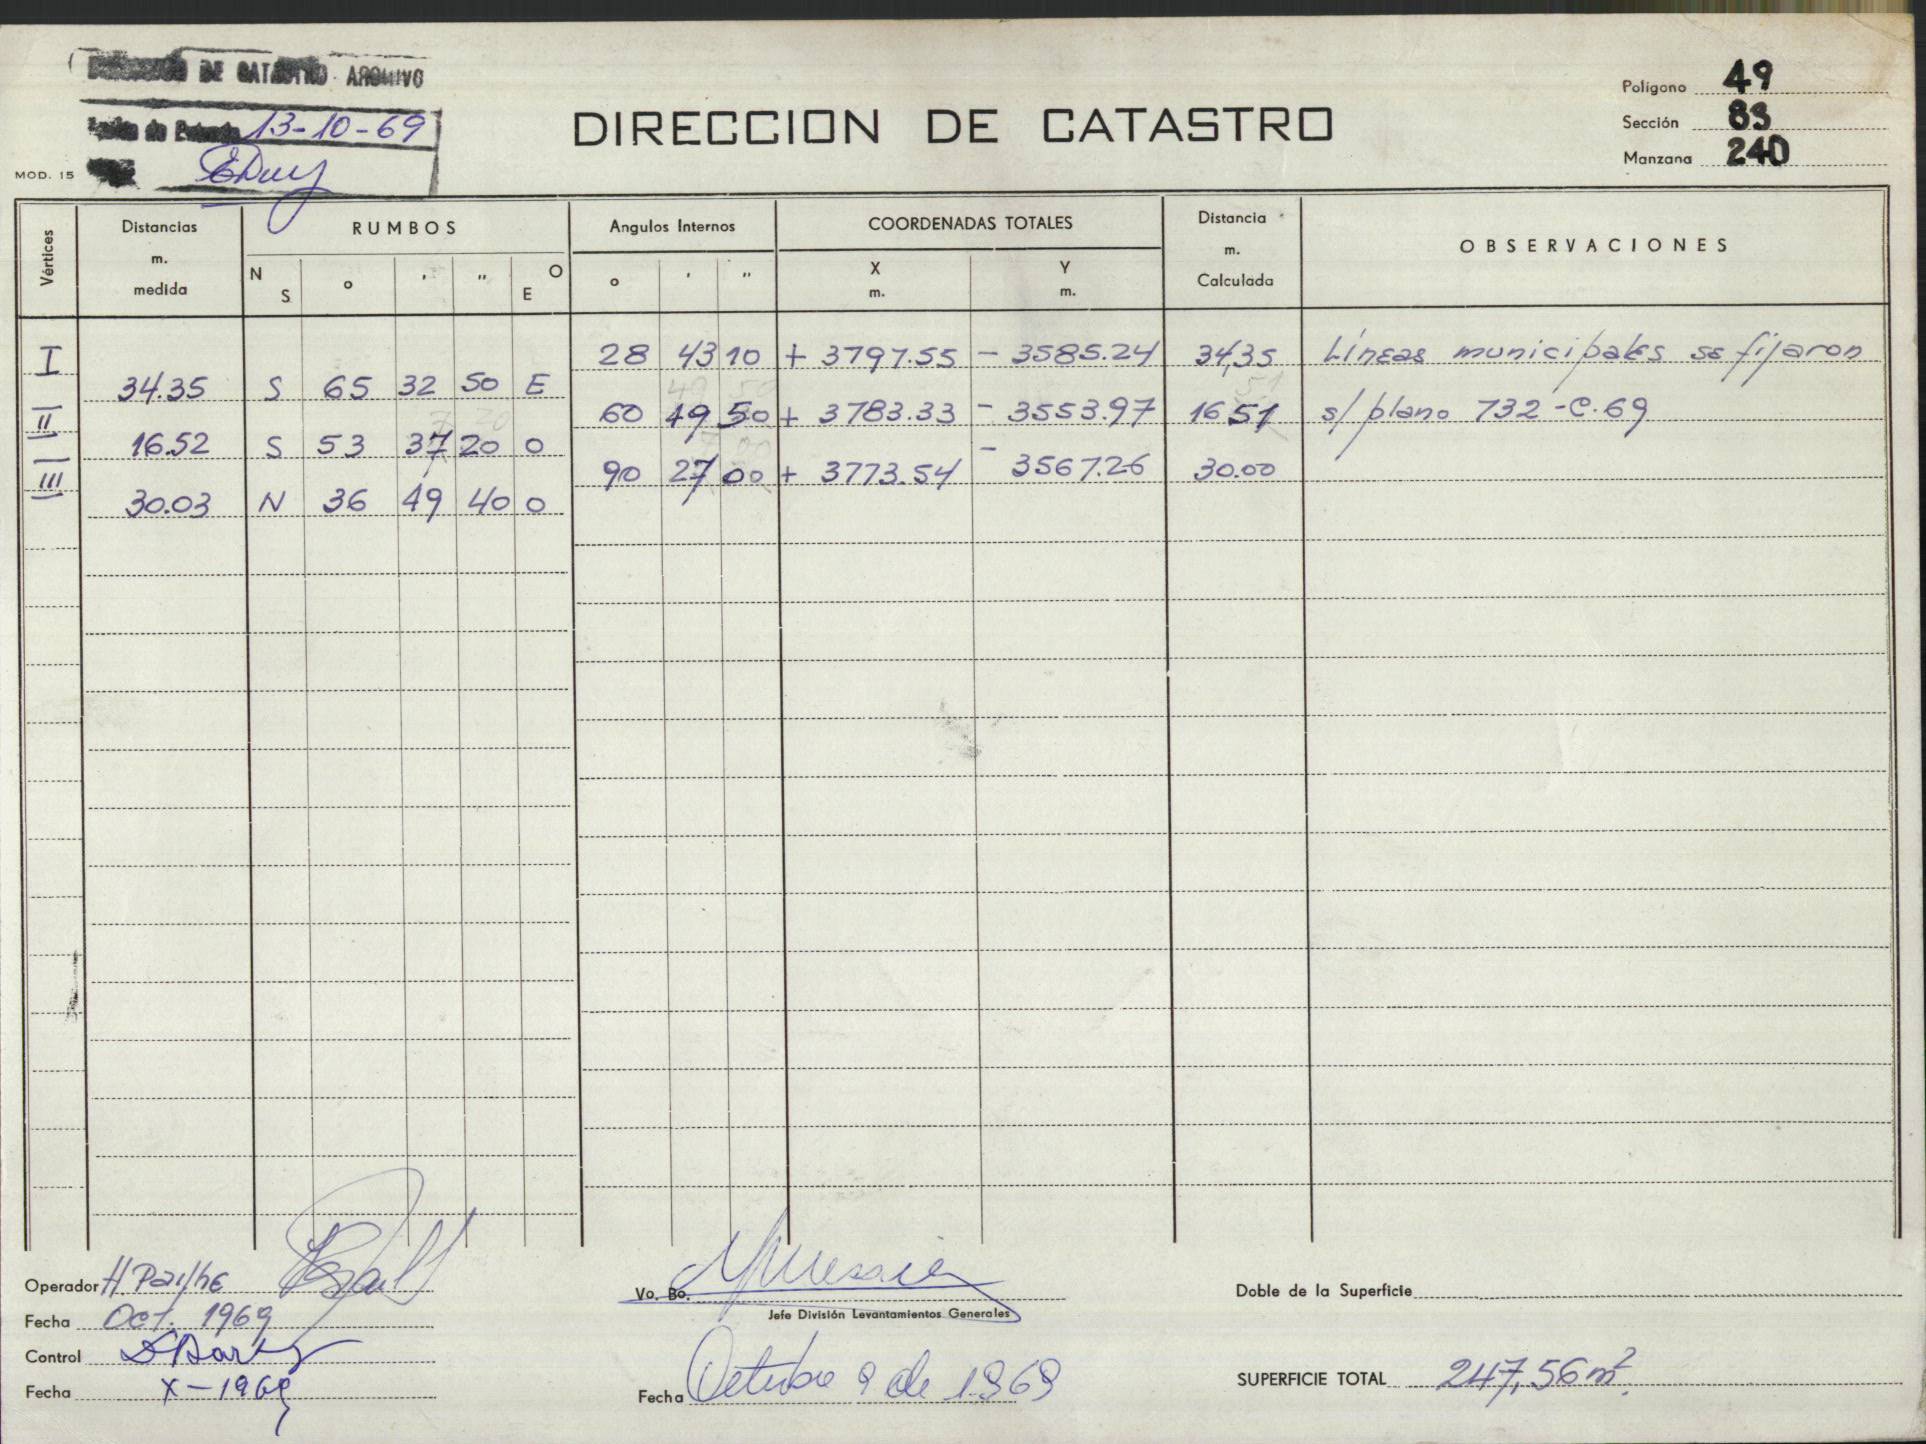 DE CATASTRO - ARCHIVO
13-10-69
MOD. 15
DIRECCION DE CATASTRO
Polígono 49
Sección 83
Manzana 240
Vértices
Distancias m. medida
RUMBOS
N S ° ' " O E
Angulos Internos
° ' "
COORDENADAS TOTALES
X m. Y m.
Distancia m. Calculada
OBSERVACIONES
I 28 43 10 + 3797.55 - 3585.24 34,35 Líneas municipales se fijaron
34.35 S 65 32 50 E
II 60 49 50 + 3783.33 - 3553.97 16 51 s/plano 732-C.69
16.52 S 53 37 20 O
III 90 27 00 + 3773.54 - 3567.26 30.00
30.03 N 36 49 40 O
Operador H Pailhe
Fecha Oct. 1969
Control
Fecha X-1969
Vo. Bo.
Jefe División Levantamientos Generales
Fecha Octubre 9 de 1969
Doble de la Superficie
SUPERFICIE TOTAL 247,56 m².